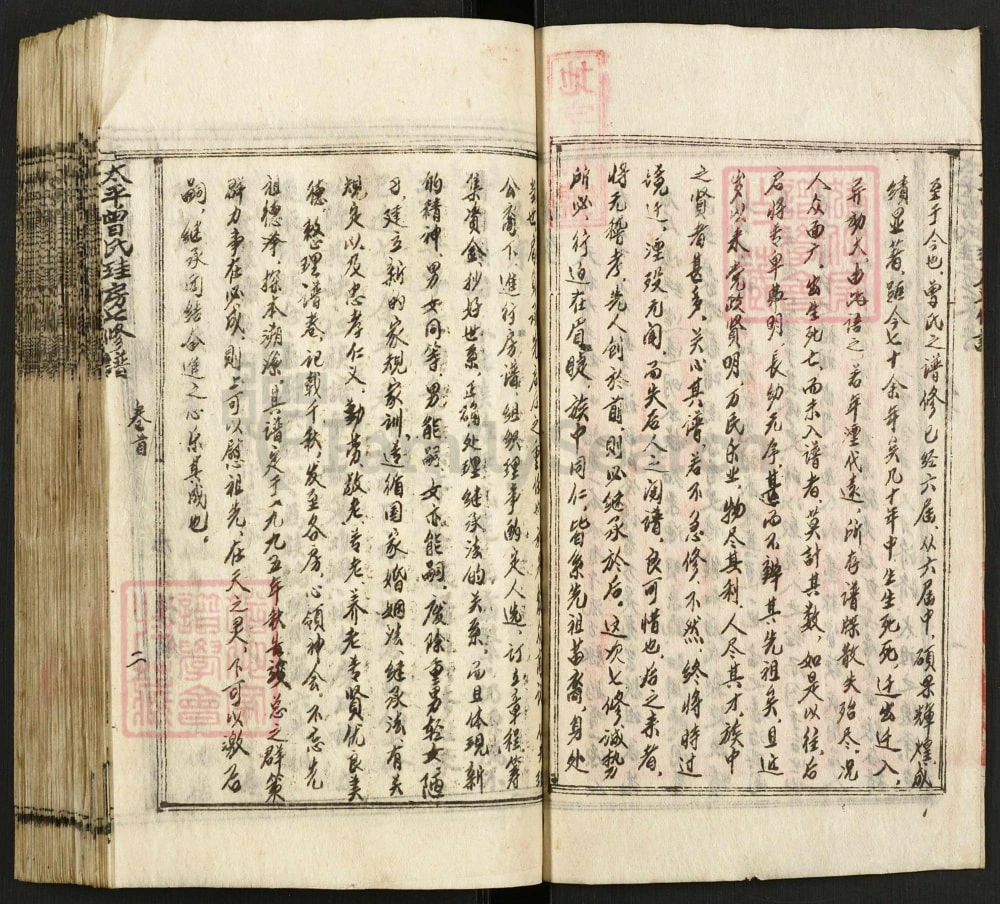 至于今也，曾氏之谱修已经六届，从六届中，硕果辉煌成，
绩显著，距今七十余年矣，几十年中生生死死迁出迁入，
异动大，由此语之，若年湮代远，所存谱牒散失殆尽，况
人众面广，出生死亡，而未入谱者，莫计其数，如是以往，后
启将专卑莫明，长幼无序，甚而不辨其先祖矣，且近
炎以来，党政贤明，万民乐业，物尽其利，人尽其才，族中
之贤者甚多，关心其谱，若不急修，不然，终将时过
境迁，湮没无闻，而失后人之阅谱，良可惜也，后之来者，
将无稽考，先人创於前，则必继承於后。这次七修诚势
所必行迫在眉睫，族中同仁，皆系先祖苗裔，身处
公裔下进行房谱，组织理事酌定人选，订立章程，筹
集资金抄好世系，正确处理继承法的关系，而且体现新
的精神，男女同等，男能嗣，女亦能嗣，废除重男轻女陋
习，建立新的家规家训，遵循国家婚姻法，继承法有关
规定以及忠孝仁义，勤劳敬老，尊老养老专贤优良美
德，整理谱卷，记载千秋，发至各房，心领神会，不忘先
祖德泽，探本溯源，其谱定于一九九五年秋告竣，总之群策
群力事在必成，则上可以慰祖先，在天之灵，下可以激后
嗣，继承团结奋进之心，乐其成也。
太平曾氏珪房七修谱
卷首
二